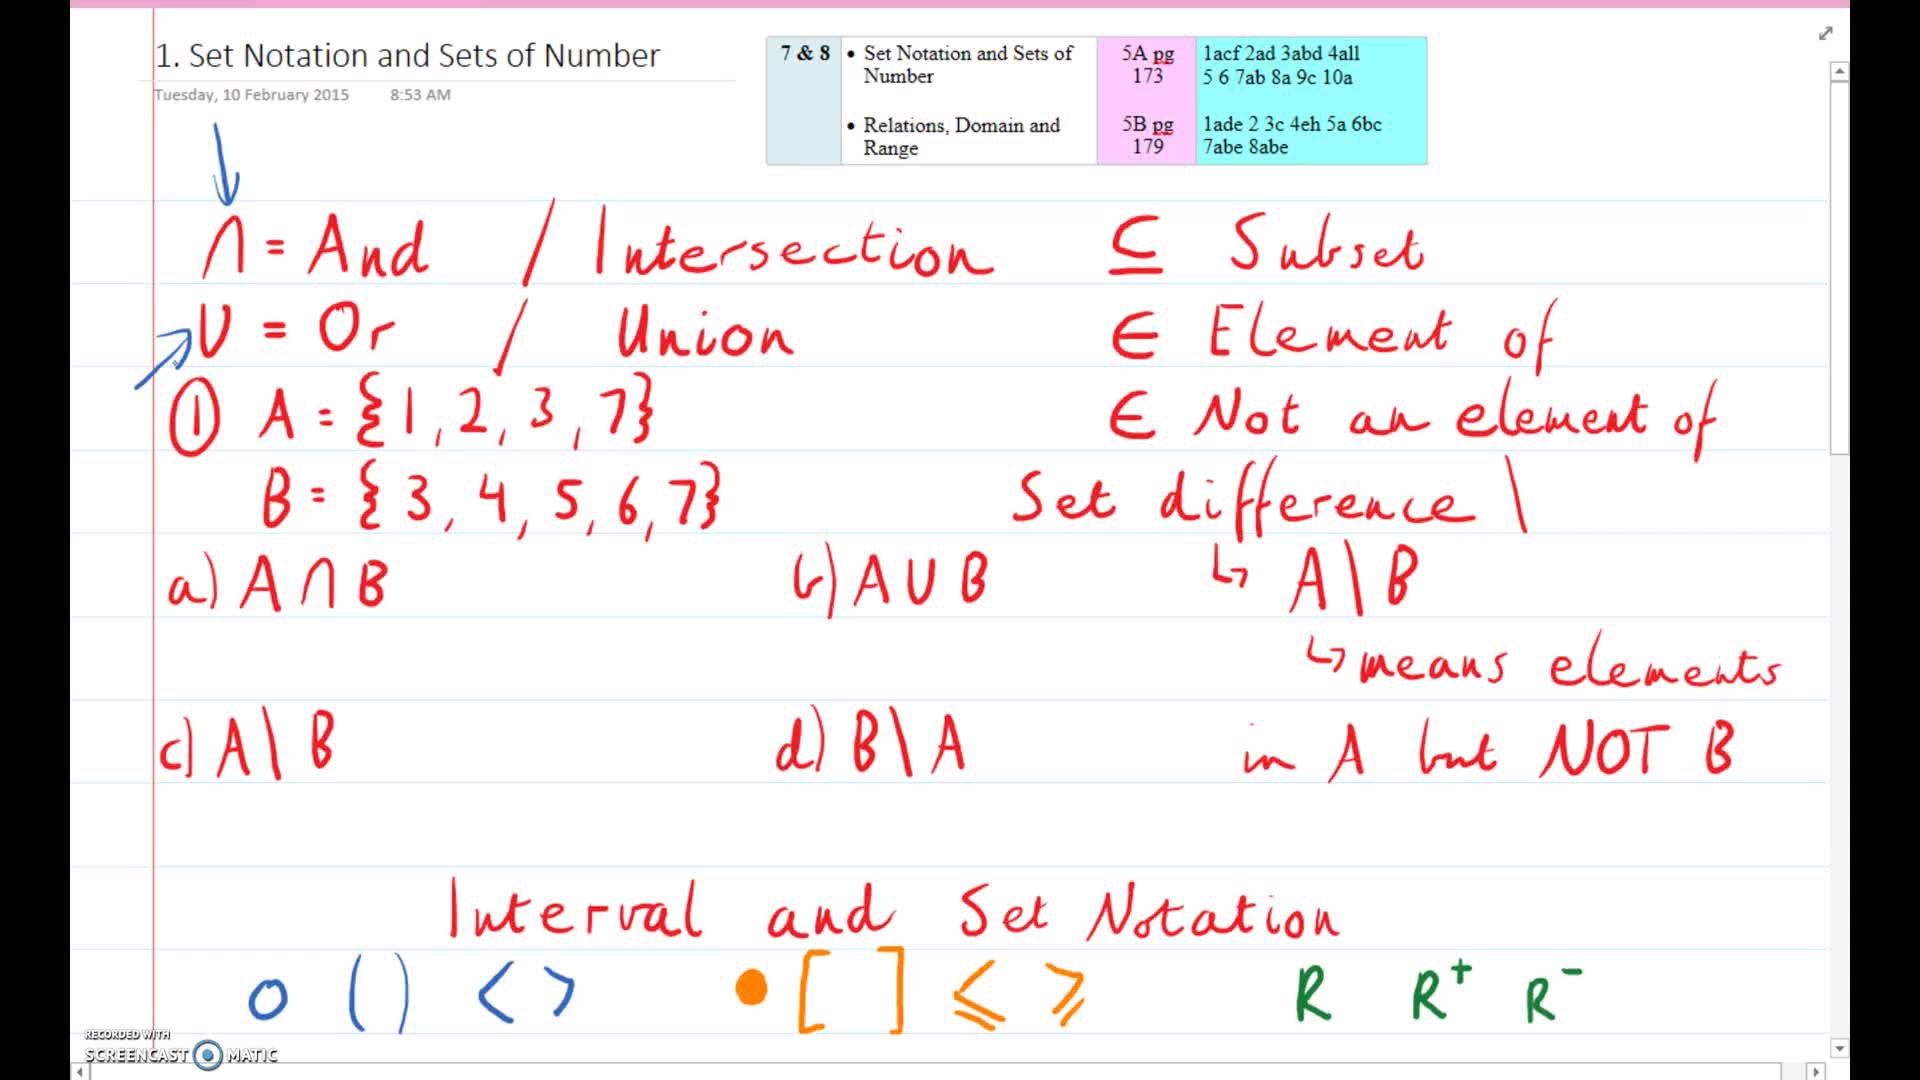 1. Set Notation and Sets of Number
Tuesday, 10 February 2015 8:53 AM
7 & 8 • Set Notation and Sets of Number 5A pg 173 1acf 2ad 3abd 4all 5 6 7ab 8a 9c 10a
• Relations, Domain and Range 5B pg 179 1ade 2 3c 4eh 5a 6bc 7abe 8abe
∩ = And / Intersection ⊆ Subset
∪ = Or / Union ∈ Element of
① A = {1, 2, 3, 7} ∈ Not an element of
B = {3, 4, 5, 6, 7} Set difference \
a) A ∩ B b) A ∪ B ↳ A \ B
↳ means elements
c) A \ B d) B \ A in A but NOT B
Interval and Set Notation
o ( ) < > • [ ] ≤ ≥ R R⁺ R⁻
RECORDED WITH
SCREENCAST MATIC